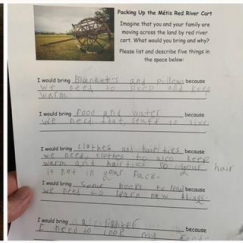 Packing Up the Métis Red River Cart
Imagine that you and your family are
moving across the land by red river
cart. What would you bring and why?
Please list and describe five things in
the space below:
I would bring blankets and pillows because
we need to and
warm
I would bring food and water because
we need that stuff to
I would bring clothes and hair ties because
we need clothes to keep
warm and hair ties so your hair
is not in your face.
I would bring some books to read because
we need to learn new things
I would bring because
I need to look